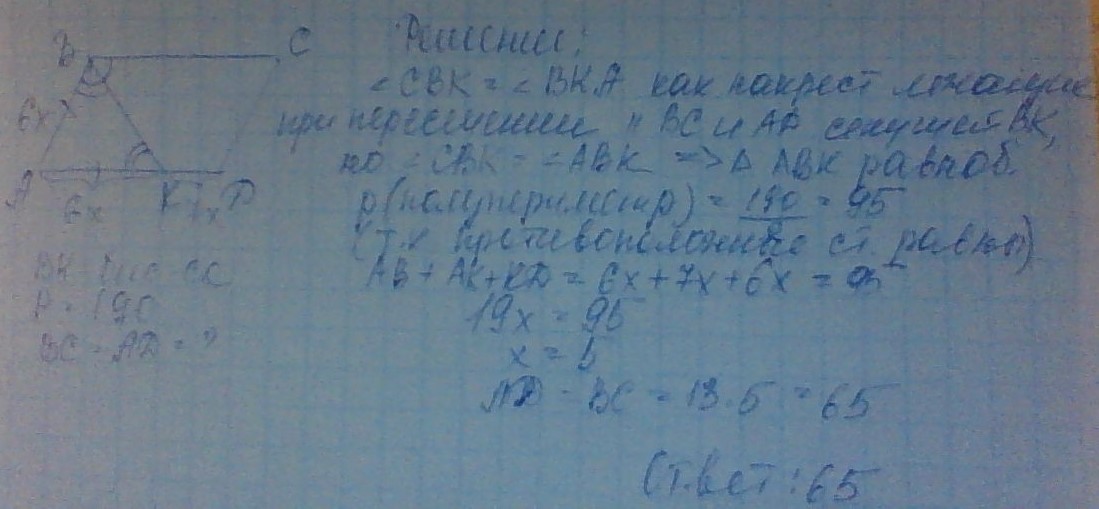 Решение:
B C
∠CBK = ∠BKA как накрест лежащие
6x
при пересечении || BC и AD секущей BK,
но ∠CBK = ∠ABK => Δ ABK равноб.
A 6x K 7x D
p(полупериметр) = 190/2 = 95
(т.к противоположные ст. равны)
BK - бис-са
AB + AK + KD = 6x + 7x + 6x = 95
P = 190
19x = 95
BC = AD = ?
x = 5
AD = BC = 13 · 5 = 65
Ответ: 65